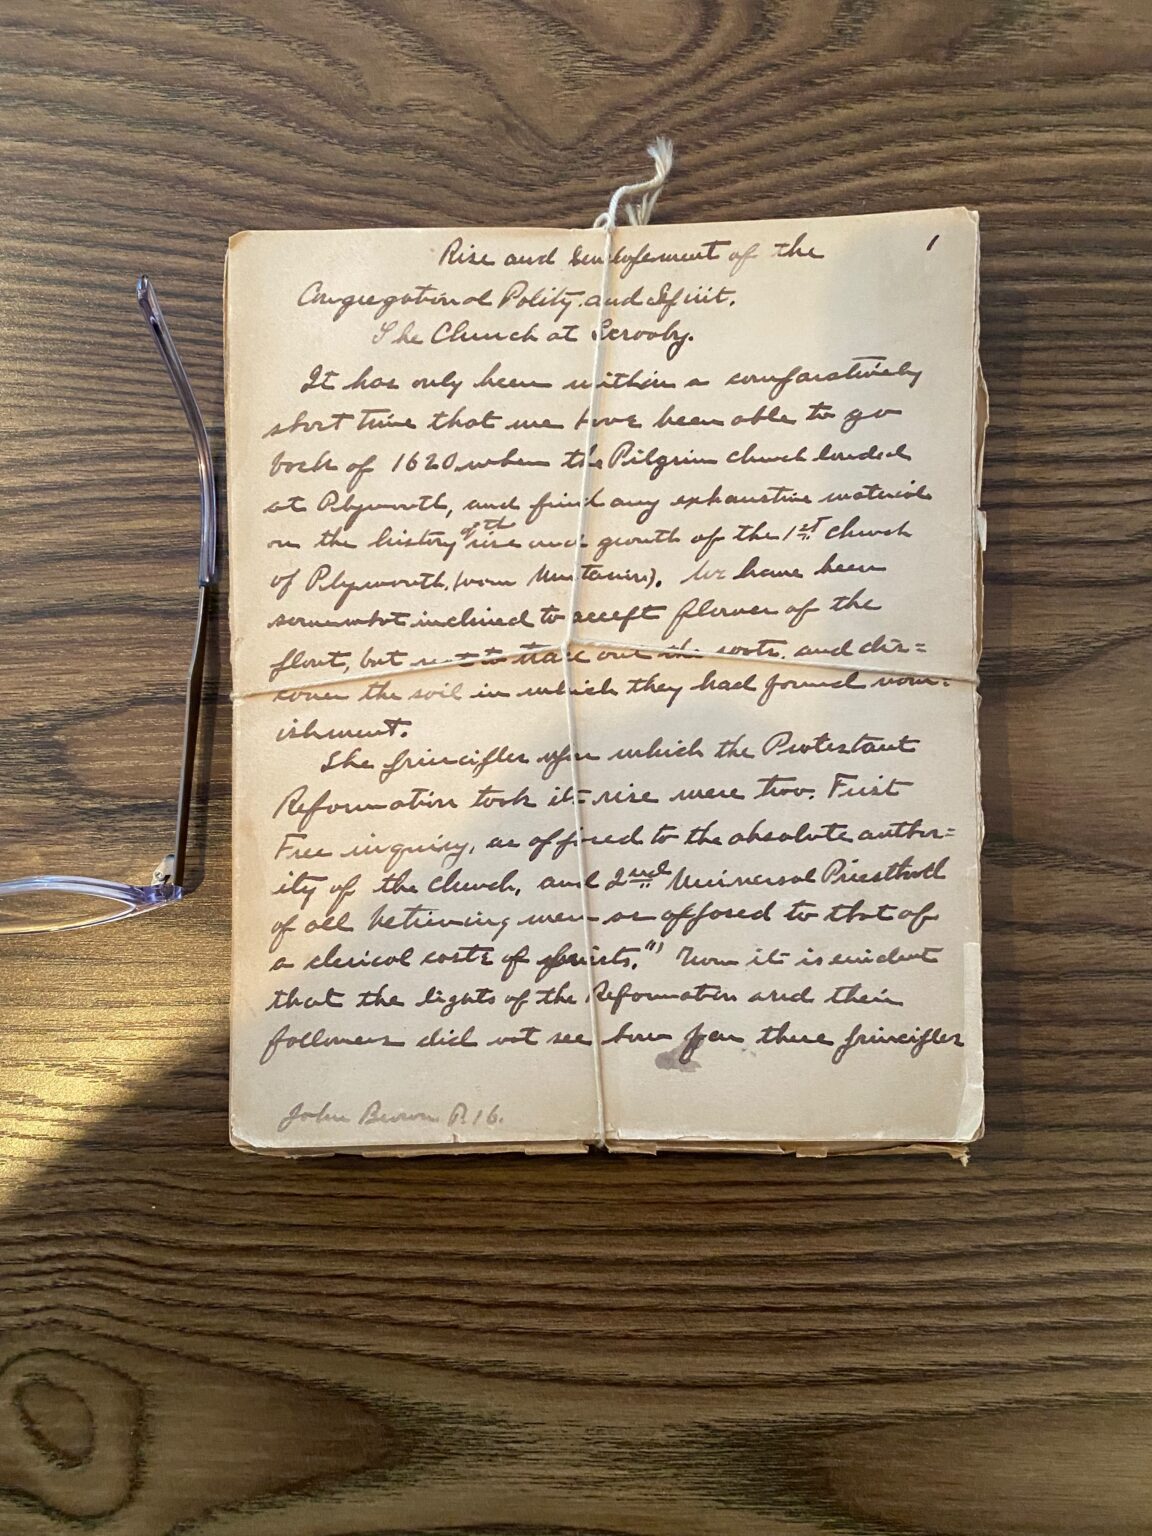 1
Rise and Development of the
Congregational Polity and Spirit.
The Church at Scrooby.
It has only been within a comparatively
short time that we have been able to go
back of 1620 when the Pilgrim church landed
at Plymouth, and find any exhaustive material
on the history of the rise and growth of the 1st church
of Plymouth, (now Unitarian). We have been
somewhat inclined to accept flower of the
plant, but not to trace out the roots, and dis=
cover the soil in which they had found nour=
ishment.
The principles upon which the Protestant
Reformation took its rise were two. First
Free inquiry, as opposed to the absolute author=
ity of the church, and 2nd Universal Priesthood
of all believing men as opposed to that of
a clerical caste of priests."(1) Now it is evident
that the lights of the Reformation and their
followers did not see how far these principles
John Brown P. 16.